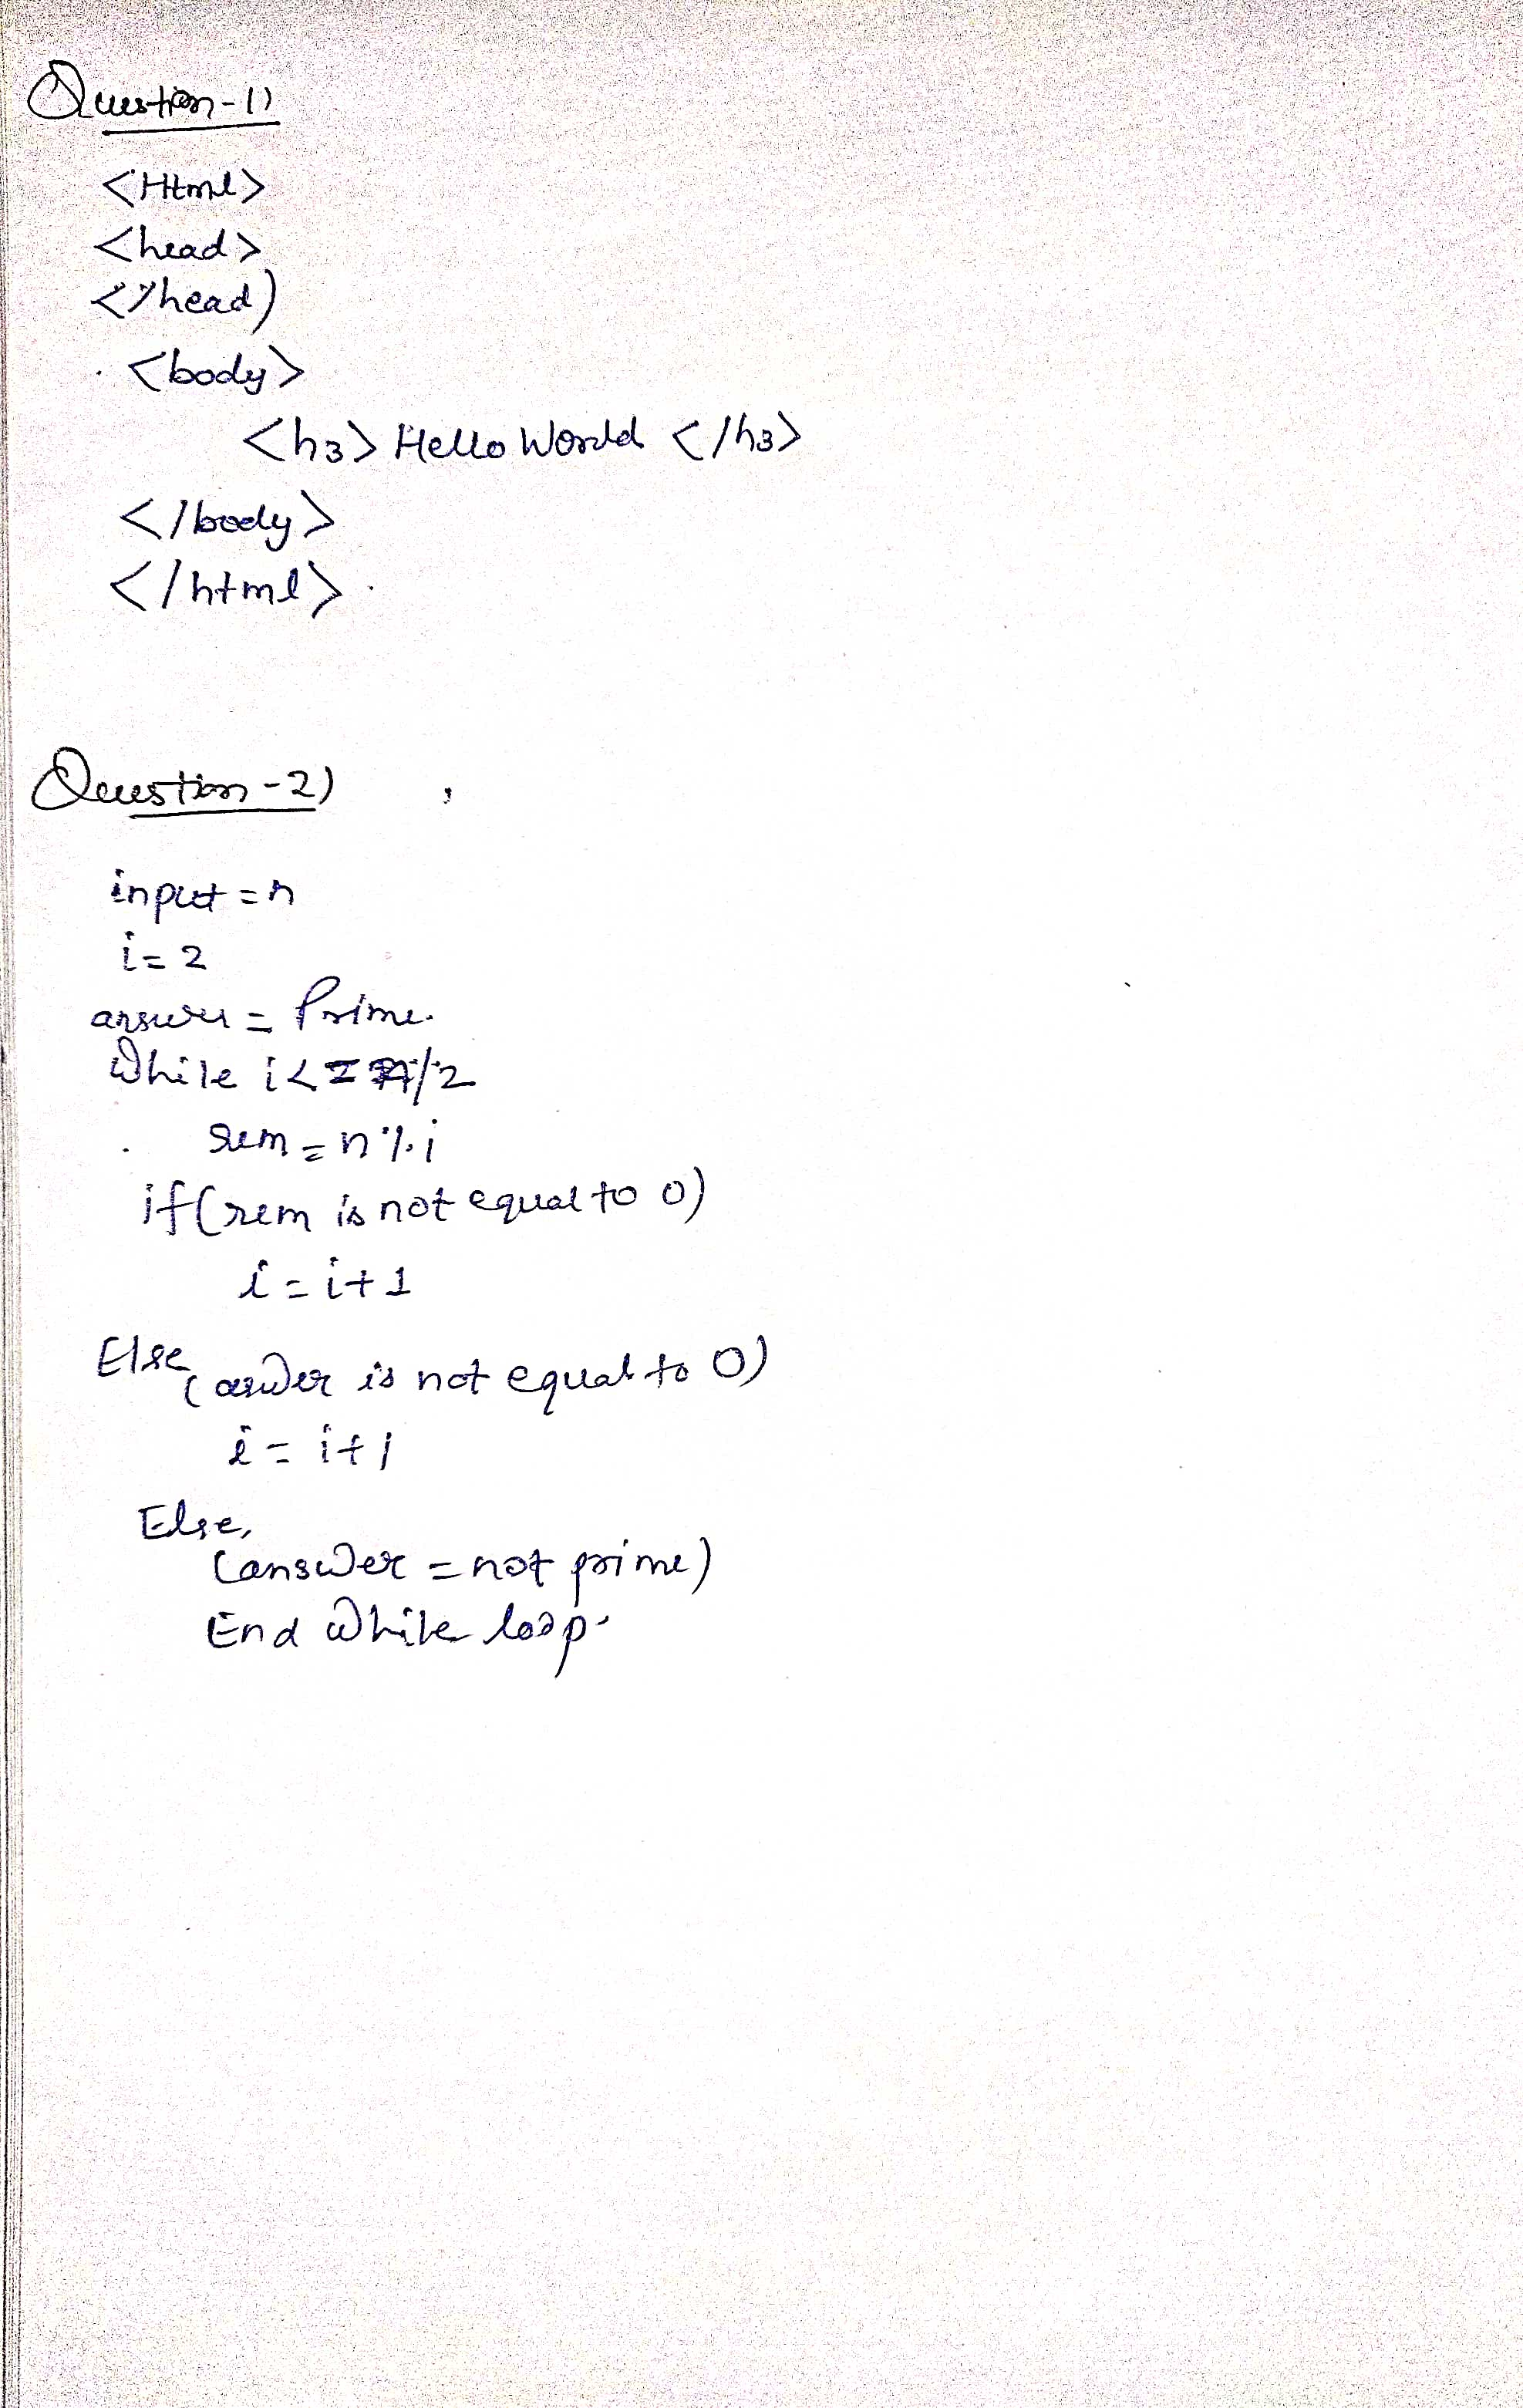 Question-1)
<Html>
<head>
</head)
<body>
<h3> Hello World </h3>
</body>
</html>.
Question-2)
input = n
i = 2
answer = Prime.
While i <= n/2
rem = n % i
if (rem is not equal to 0)
i = i+1
Else,
(answer is not equal to 0)
i = i+1
Else,
(answer = not prime)
End While loop.